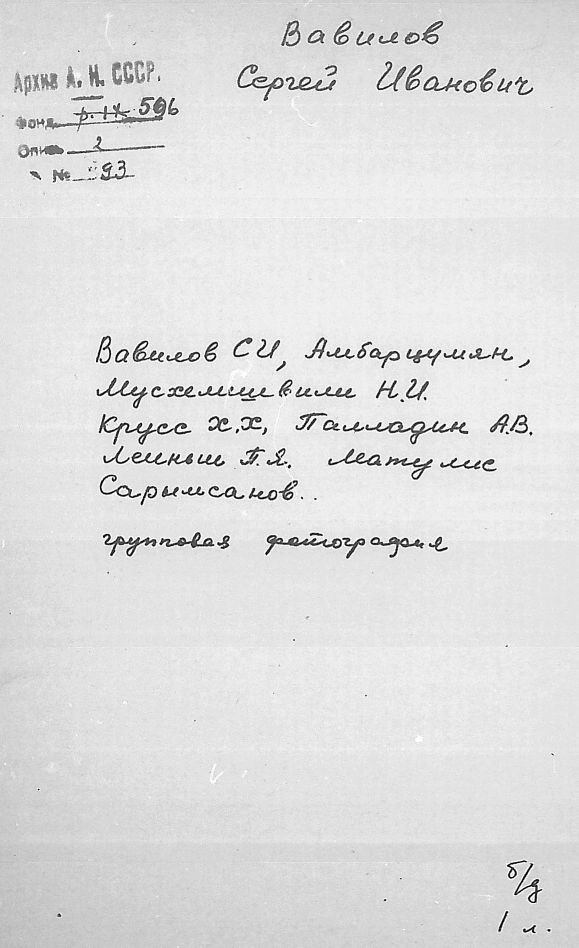 Вавилов
Сергей Иванович
Архив А. Н. СССР.
Фонд р. IX 596
Опись 2
№ 93
Вавилов СИ, Амбарцумян,
Мусхелишвили Н.И.
Крусс Х.Х, Палладин А.В.
Лейньш П.Я. Матулис
Сарымсанов..
групповая фотография
б/д
1 л.